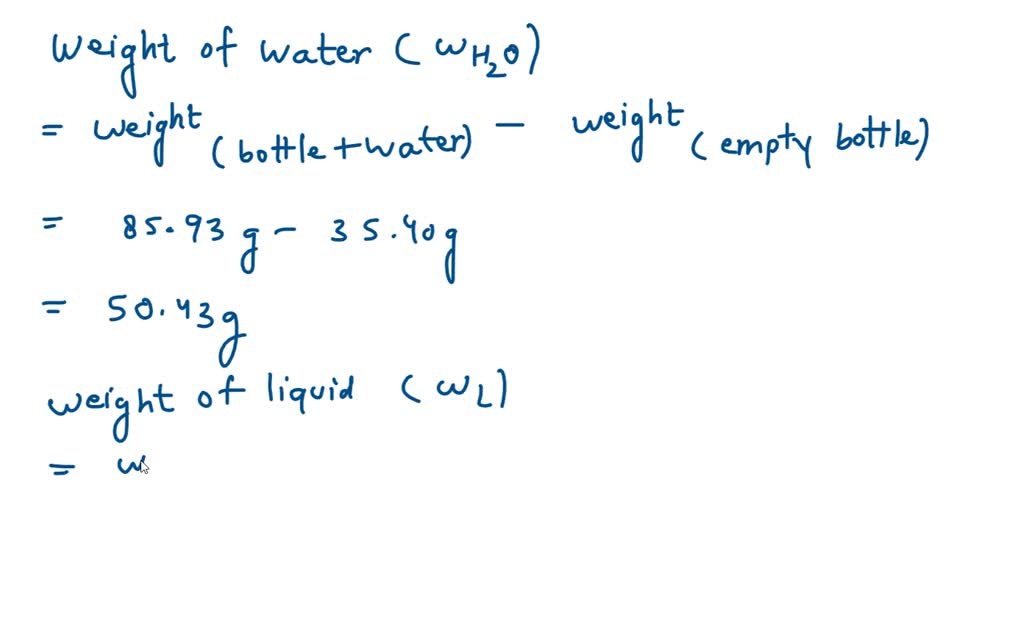 Weight of water (WH2O)
= weight (bottle+water) - weight (empty bottle)
= 85.93g - 35.40g
= 50.43g
weight of liquid (WL)
= w